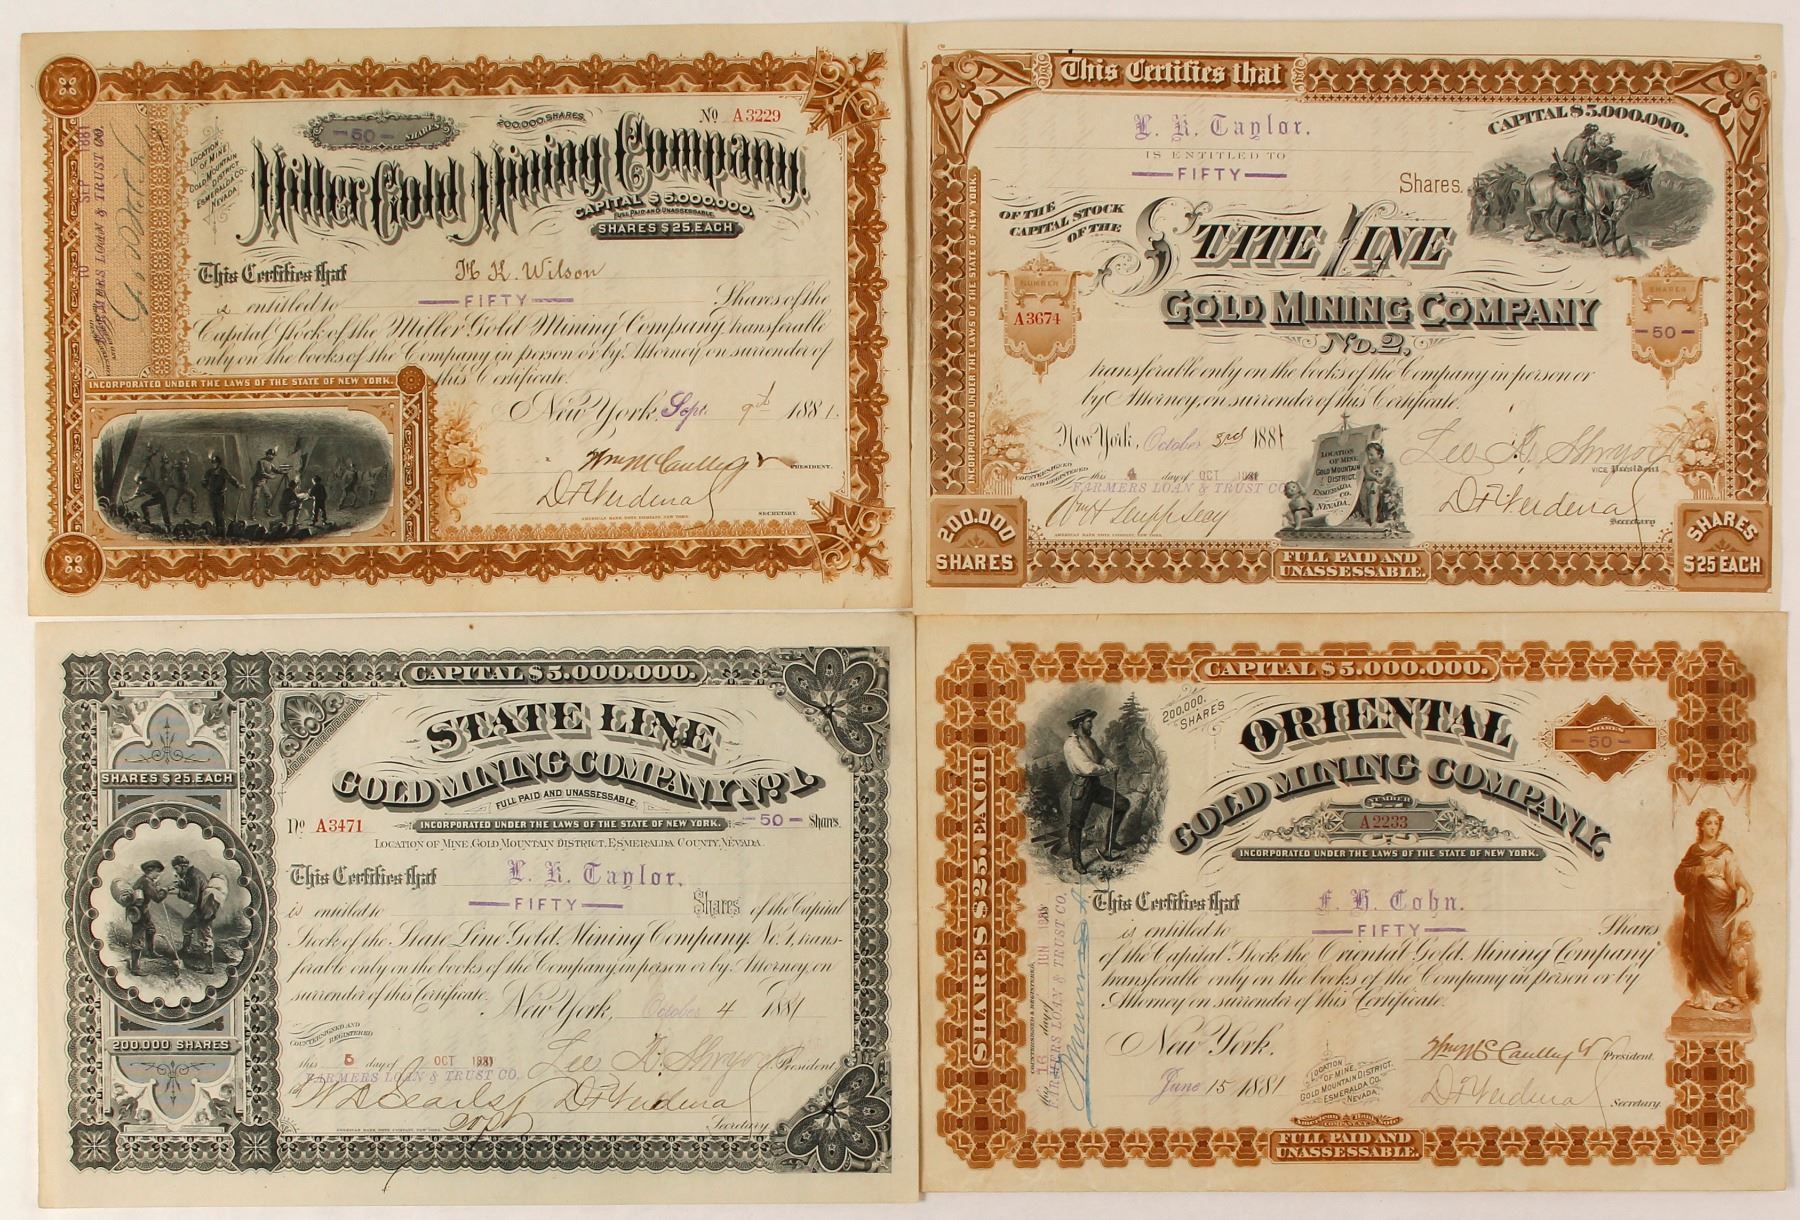 -50- SHARES.
200,000 SHARES.
No A3229
LOCATION
OF MINE
GOLD MOUNTAIN
DISTRICT
ESMERALDA CO.
NEVADA.
Miller Gold Mining Company.
CAPITAL $5,000,000.
FULL PAID AND UNASSESSABLE.
SHARES $25, EACH
This Certifies that H K. Wilson
is entitled to FIFTY Shares of the
Capital Stock of the Miller Gold Mining Company transferable
only on the books of the Company in person or by Attorney on surrender of
this Certificate.
INCORPORATED UNDER THE LAWS OF THE STATE OF NEW YORK.
New York Sept. 9th 1881.
PRESIDENT.
D F Verdenal
SECRETARY.
AMERICAN BANK NOTE COMPANY, NEW YORK.
10 SEP 1881
FARMERS LOAN & TRUST CO.
This Certifies that
CAPITAL $5,000,000.
L. K. Taylor.
IS ENTITLED TO
FIFTY
Shares.
OF THE
CAPITAL STOCK
OF THE
STATE LINE
GOLD MINING COMPANY
No. 2,
NUMBER
A3674
SHARES
-50-
INCORPORATED UNDER THE LAWS OF THE STATE OF NEW YORK.
transferable only on the books of the Company in person or
by Attorney, on surrender of this Certificate.
New York, October 3rd 1881
LOCATION
OF MINE,
GOLD MOUNTAIN
DISTRICT.
ESMERALDA
CO.
NEVADA.
VICE President
COUNTERSIGNED
AND REGISTERED
this 4 day of OCT 1881
FARMERS LOAN & TRUST CO
D F Verdenal
Secretary
AMERICAN BANK NOTE COMPANY, NEW YORK.
200,000
SHARES
FULL PAID AND
UNASSESSABLE.
SHARES
$25 EACH
CAPITAL $5,000,000.
STATE LINE
GOLD MINING COMPANY No. 1,
FULL PAID AND UNASSESSABLE,
SHARES $25, EACH
No A3471
INCORPORATED UNDER THE LAWS OF THE STATE OF NEW YORK.
-50- Shares.
LOCATION OF MINE, GOLD MOUNTAIN DISTRICT, ESMERALDA COUNTY, NEVADA.
This Certifies that L. K. Taylor.
is entitled to FIFTY Shares of the Capital
Stock of the State Line Gold Mining Company No. 1, trans-
ferable only on the books of the Company, in person or by Attorney, on
surrender of this Certificate. New York, October 4 1881
200,000 SHARES
COUNTERSIGNED AND
REGISTERED
this 5 day of OCT 1881
FARMERS LOAN & TRUST CO.
President
D F Verdenal
Secretary
AMERICAN BANK NOTE COMPANY, NEW YORK.
CAPITAL $5,000,000.
200,000,
SHARES
ORIENTAL
GOLD MINING COMPANY,
SHARES
-50-
NUMBER
A2233
INCORPORATED UNDER THE LAWS OF THE STATE OF NEW YORK.
SHARES $25, EACH
This Certifies that F. H. Cohn.
is entitled to FIFTY Shares
of the Capital Stock the Oriental Gold Mining Company
transferable only on the books of the Company in person or by
Attorney on surrender of this Certificate.
New York,
June 15 1881
LOCATION
OF MINE,
GOLD MOUNTAIN DISTRICT,
ESMERALDA CO.
NEVADA.
President
D F Verdenal
Secretary
COUNTERSIGNED & REGISTERED
this 16 day of JUN 1881
FARMERS LOAN & TRUST CO.
American Bank Note
Company N.Y.
FULL PAID AND
UNASSESSABLE.